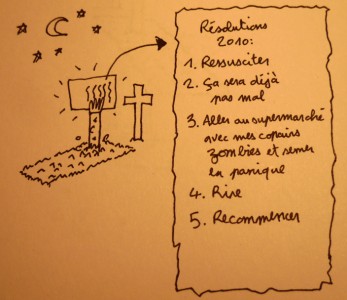 Résolutions
2010:
1. Ressusciter
2. Ça sera déjà
pas mal
3. Aller au supermarché
avec mes copains
zombies et semer
la panique
4. Rire
5. Recommencer